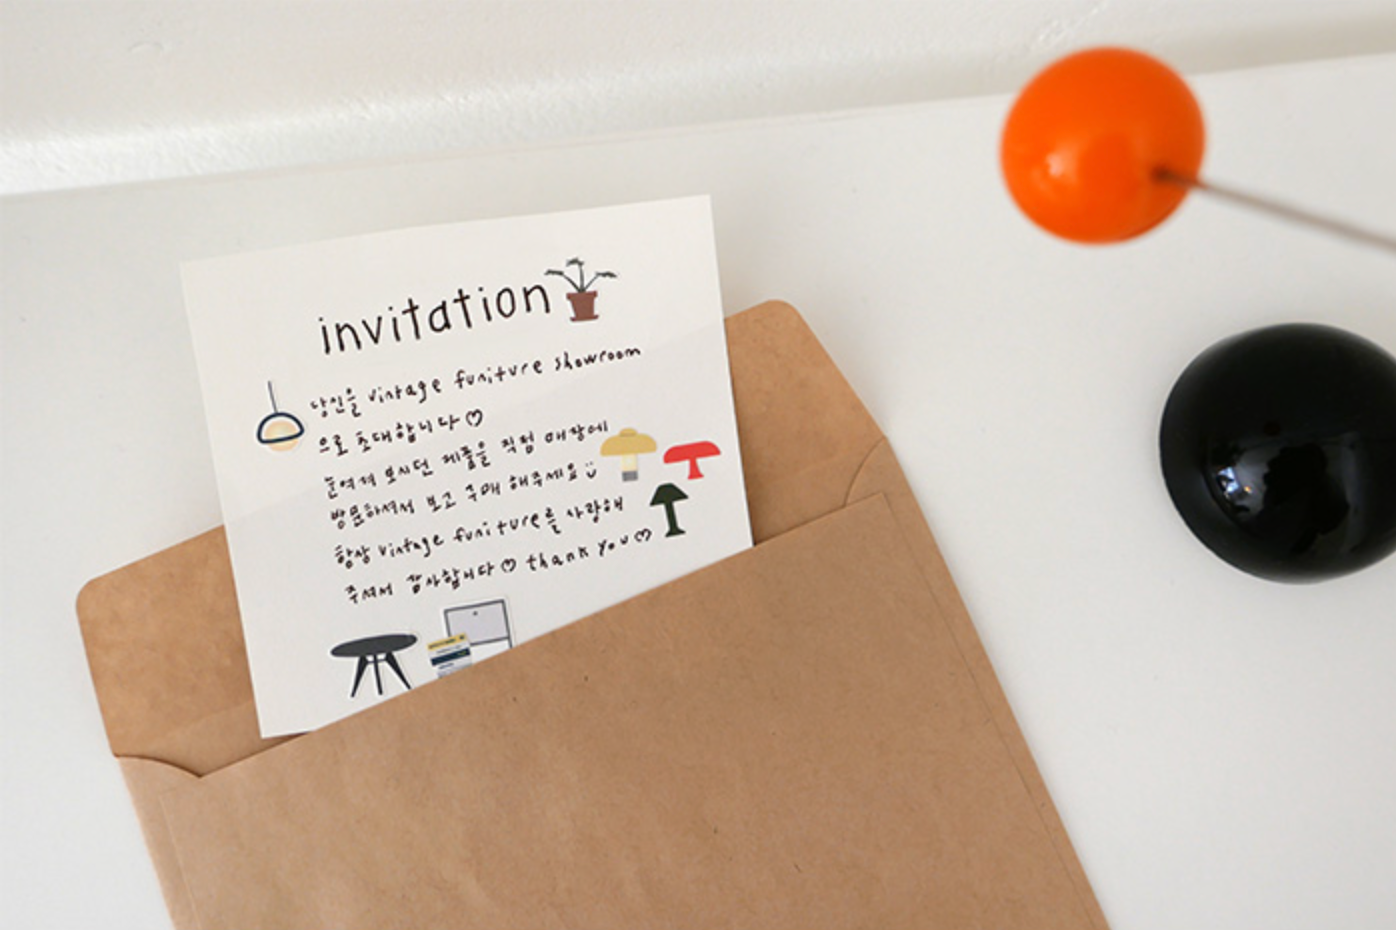 invitation
당신을 vintage funiture showroom
으로 초대합니다♡
눈여겨 보시던 제품을 직접 매장에
방문하셔서 보고 구매 해주세요
항상 vintage funiture를 사랑해
주셔서 감사합니다♡ thank you♡